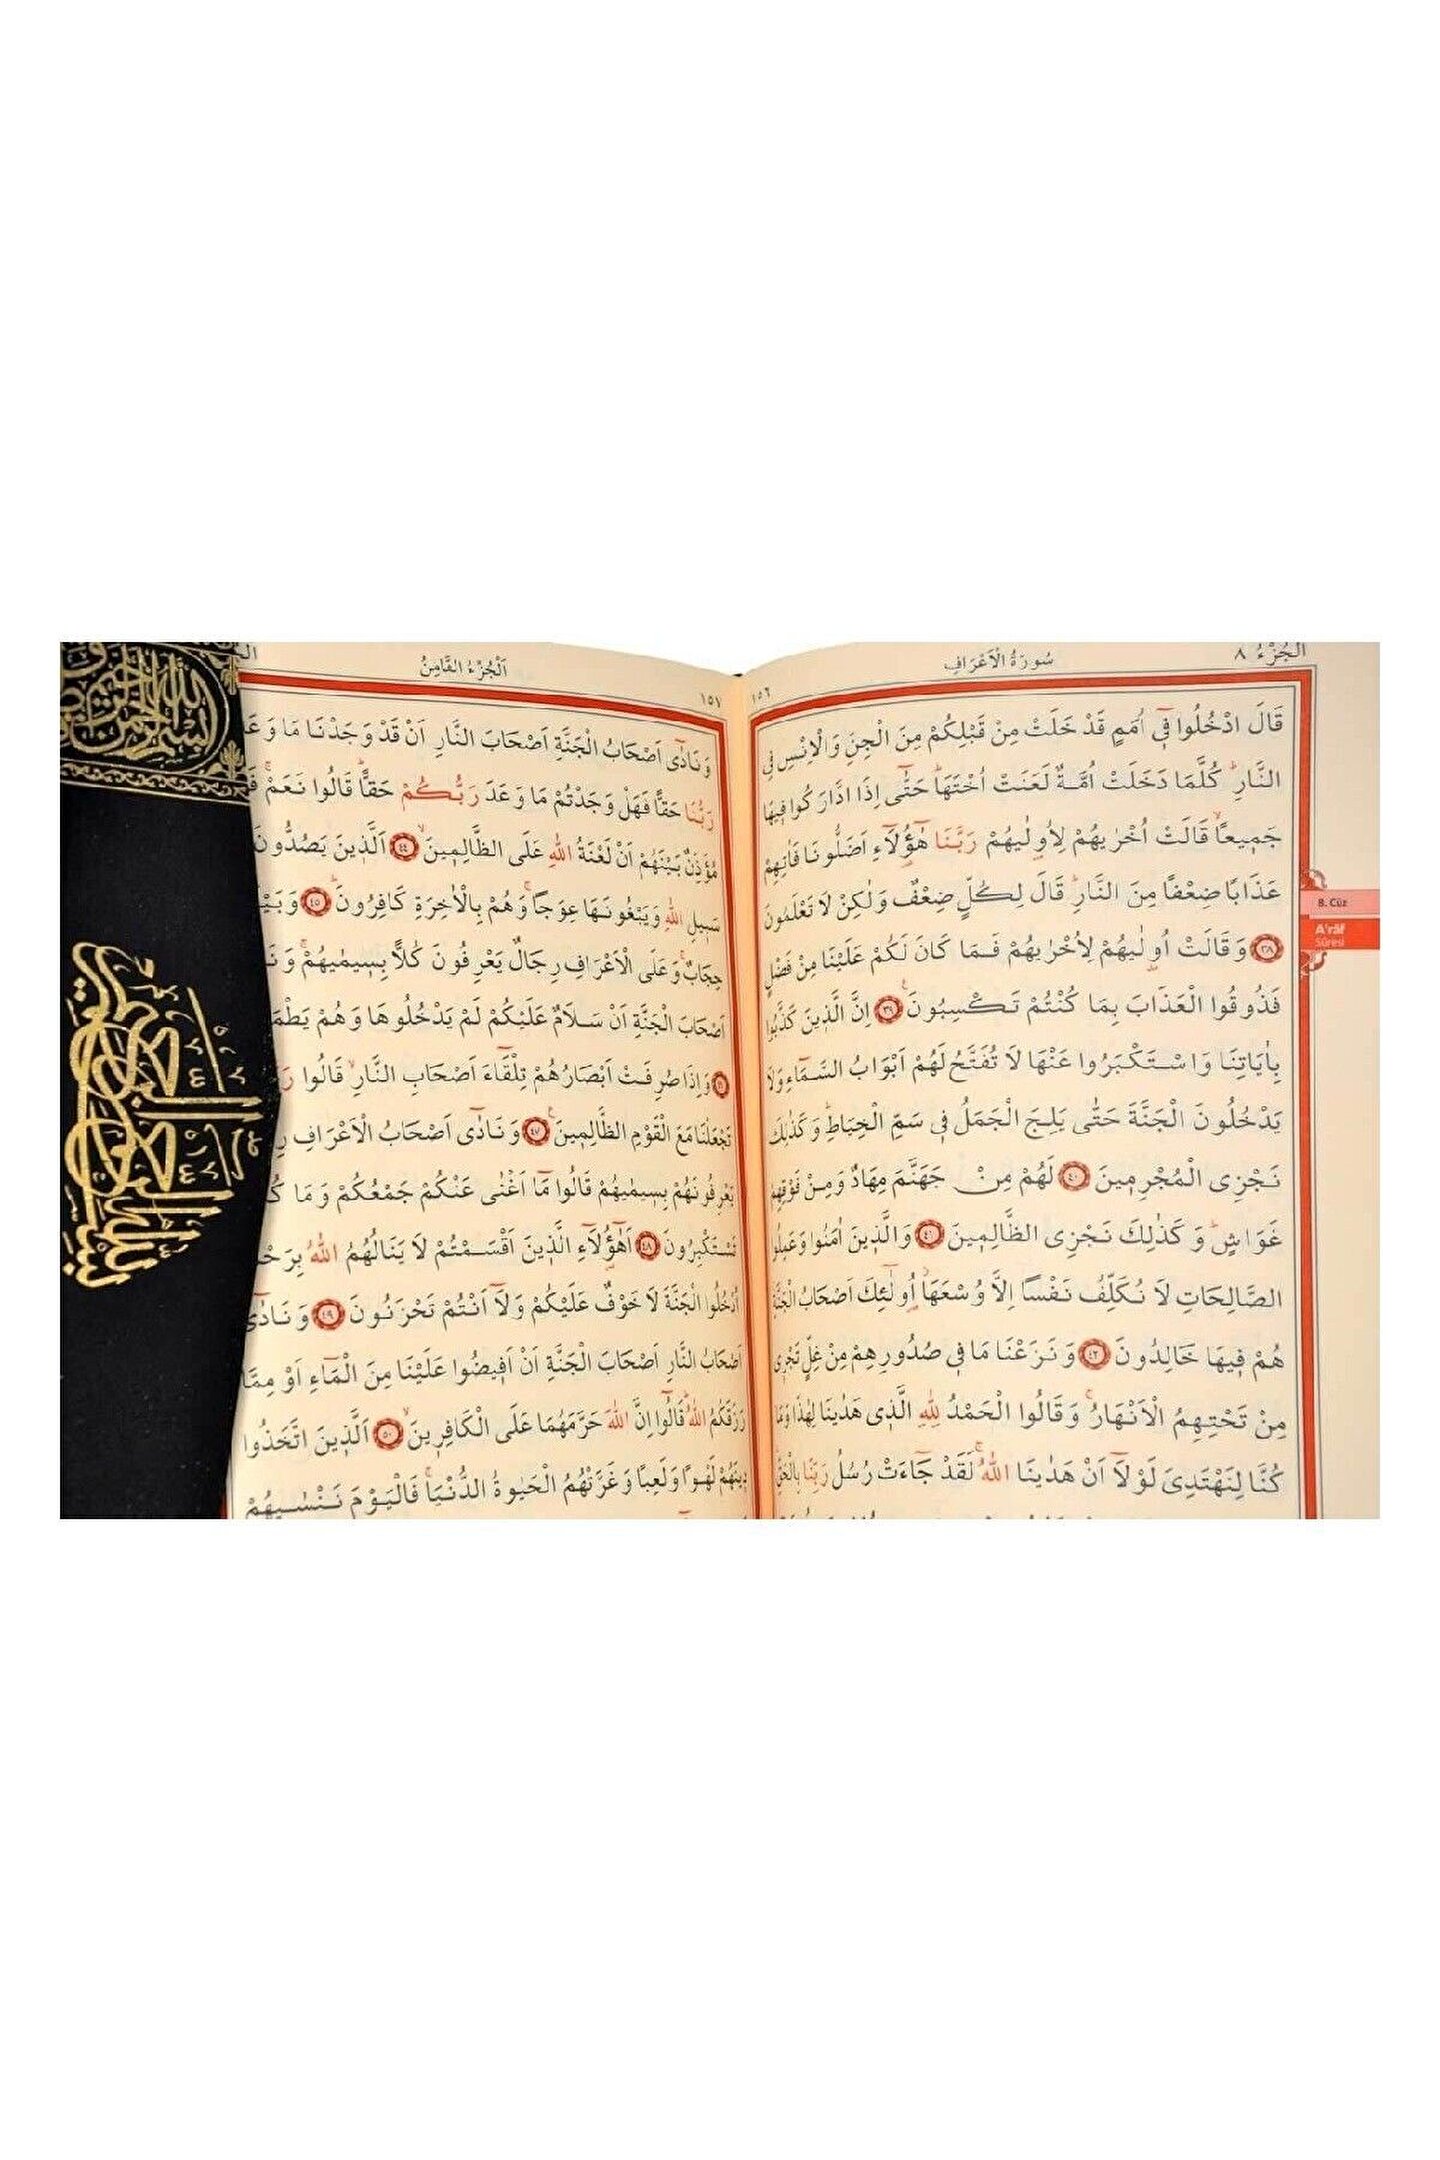 سُورَةُ الْاَعْرَافِ
اَلْجُزْءُ ٨
١٥٦
قَالَ ادْخُلُوا ف۪ٓي اُمَمٍ قَدْ خَلَتْ مِنْ قَبْلِكُمْ مِنَ الْجِنِّ وَالْاِنْسِ فِي
النَّارِۜ كُلَّمَا دَخَلَتْ اُمَّةٌ لَعَنَتْ اُخْتَهَاۜ حَتّٰٓى اِذَا ادَّارَكُوا ف۪يهَا
جَم۪يعًاۙ قَالَتْ اُخْرٰيهُمْ لِاُو۫لٰيهُمْ رَبَّنَا هٰٓؤُ۬لَٓاءِ اَضَلُّونَا فَاٰتِهِمْ
عَذَابًا ضِعْفًا مِنَ النَّارِۜ قَالَ لِكُلٍّ ضِعْفٌ وَلٰكِنْ لَا تَعْلَمُونَ
﴿٣٨﴾ وَقَالَتْ اُو۫لٰيهُمْ لِاُخْرٰيهُمْ فَمَا كَانَ لَكُمْ عَلَيْنَا مِنْ فَضْلٍ
فَذُوقُوا الْعَذَابَ بِمَا كُنْتُمْ تَكْسِبُونَ۟ ﴿٣٩﴾ اِنَّ الَّذ۪ينَ كَذَّبُوا
بِاٰيَاتِنَا وَاسْتَكْبَرُوا عَنْهَا لَا تُفَتَّحُ لَهُمْ اَبْوَابُ السَّمَٓاءِ وَلَا
يَدْخُلُونَ الْجَنَّةَ حَتّٰى يَلِجَ الْجَمَلُ ف۪ي سَمِّ الْخِيَاطِۜ وَكَذٰلِكَ
نَجْزِي الْمُجْرِم۪ينَ ﴿٤٠﴾ لَهُمْ مِنْ جَهَنَّمَ مِهَادٌ وَمِنْ فَوْقِهِمْ
غَوَاشٍۜ وَكَذٰلِكَ نَجْزِي الظَّالِم۪ينَ ﴿٤١﴾ وَالَّذ۪ينَ اٰمَنُوا وَعَمِلُوا
الصَّالِحَاتِ لَا نُكَلِّفُ نَفْسًا اِلَّا وُسْعَهَاۘ اُو۬لٰٓئِكَ اَصْحَابُ الْجَنَّةِ
هُمْ ف۪يهَا خَالِدُونَ ﴿٤٢﴾ وَنَزَعْنَا مَا ف۪ي صُدُورِهِمْ مِنْ غِلٍّ تَجْر۪ي
مِنْ تَحْتِهِمُ الْاَنْهَارُۚ وَقَالُوا الْحَمْدُ لِلّٰهِ الَّذ۪ي هَدٰينَا لِهٰذَا وَمَا
كُنَّا لِنَهْتَدِيَ لَوْلَٓا اَنْ هَدٰينَا اللّٰهُۚ لَقَدْ جَٓاءَتْ رُسُلُ رَبِّنَا بِالْحَقِّۜ
8. Cüz
A'râf
Sûresi
اَلْجُزْءُ الثَّامِنُ
١٥٧
وَنَادٰٓى اَصْحَابُ الْجَنَّةِ اَصْحَابَ النَّارِ اَنْ قَدْ وَجَدْنَا مَا وَعَدَ
رَبُّنَا حَقًّا فَهَلْ وَجَدْتُمْ مَا وَعَدَ رَبُّكُمْ حَقًّاۜ قَالُوا نَعَمْۚ
مُؤَذِّنٌ بَيْنَهُمْ اَنْ لَعْنَةُ اللّٰهِ عَلَى الظَّالِم۪ينَۙ ﴿٤٤﴾ اَلَّذ۪ينَ يَصُدُّونَ
سَب۪يلِ اللّٰهِ وَيَبْغُونَهَا عِوَجًاۚ وَهُمْ بِالْاٰخِرَةِ كَافِرُونَۜ ﴿٤٥﴾
حِجَابٌۚ وَعَلَى الْاَعْرَافِ رِجَالٌ يَعْرِفُونَ كُلًّا بِس۪يمٰيهُمْۚ
اَصْحَابَ الْجَنَّةِ اَنْ سَلَامٌ عَلَيْكُمْ لَمْ يَدْخُلُوهَا وَهُمْ
وَاِذَا صُرِفَتْ اَبْصَارُهُمْ تِلْقَٓاءَ اَصْحَابِ النَّارِۙ قَالُوا
تَجْعَلْنَا مَعَ الْقَوْمِ الظَّالِم۪ينَ۟ ﴿٤٧﴾ وَنَادٰٓى اَصْحَابُ الْاَعْرَافِ
يَعْرِفُونَهُمْ بِس۪يمٰيهُمْ قَالُوا مَٓا اَغْنٰى عَنْكُمْ جَمْعُكُمْ وَمَا
تَسْتَكْبِرُونَ ﴿٤٨﴾ اَهٰٓؤُ۬لَٓاءِ الَّذ۪ينَ اَقْسَمْتُمْ لَا يَنَالُهُمُ اللّٰهُ
اُدْخُلُوا الْجَنَّةَ لَا خَوْفٌ عَلَيْكُمْ وَلَٓا اَنْتُمْ تَحْزَنُونَ ﴿٤٩﴾ وَنَادٰٓى
اَصْحَابُ النَّارِ اَصْحَابَ الْجَنَّةِ اَنْ اَف۪يضُوا عَلَيْنَا مِنَ الْمَٓاءِ اَوْ مِمَّا
رَزَقَكُمُ اللّٰهُۜ قَالُٓوا اِنَّ اللّٰهَ حَرَّمَهُمَا عَلَى الْكَافِر۪ينَۙ ﴿٥٠﴾ اَلَّذ۪ينَ اتَّخَذُوا
د۪ينَهُمْ لَهْوًا وَلَعِبًا وَغَرَّتْهُمُ الْحَيٰوةُ الدُّنْيَاۚ فَالْيَوْمَ نَنْسٰيهُمْ